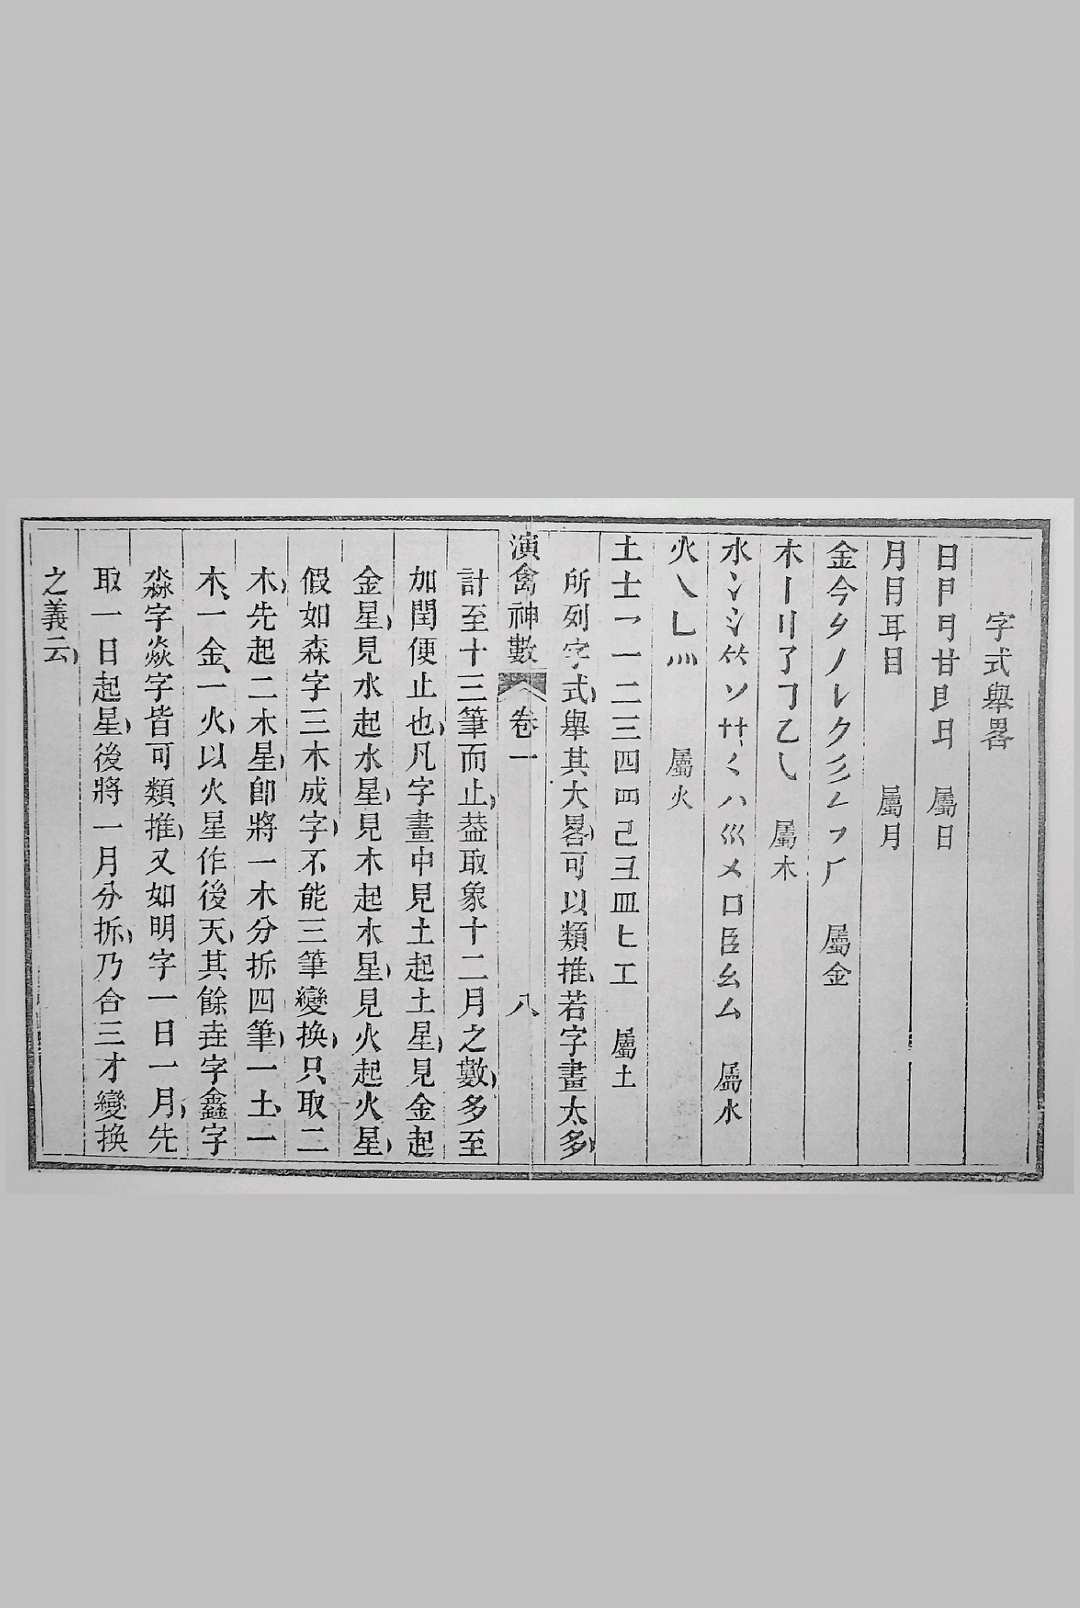 字式舉畧
日 甘 屬日
月 耳目 屬月
金今 丿 彡 厂 屬金
木丨刂了 乙 屬木
水冫氵 艹 ハ巛 口臣幺厶 屬水
火 灬 屬火
土士 一二三四 皿 工 屬土
所列字式舉其大畧可以類推若字畫太多
演禽神數 卷一 八
計至十三筆而止葢取象十二月之數多至
加閏便止也凡字畫中見土起土星見金起
金星見水起水星見木起木星見火起火星
假如森字三木成字不能三筆變換只取二
木先起二木星卽將一木分拆四筆一土一
木一金一火以火星作後天其餘垚字鑫字
淼字焱字皆可類推又如明字一日一月先
取一日起星後將一月分拆乃合三才變換
之義云